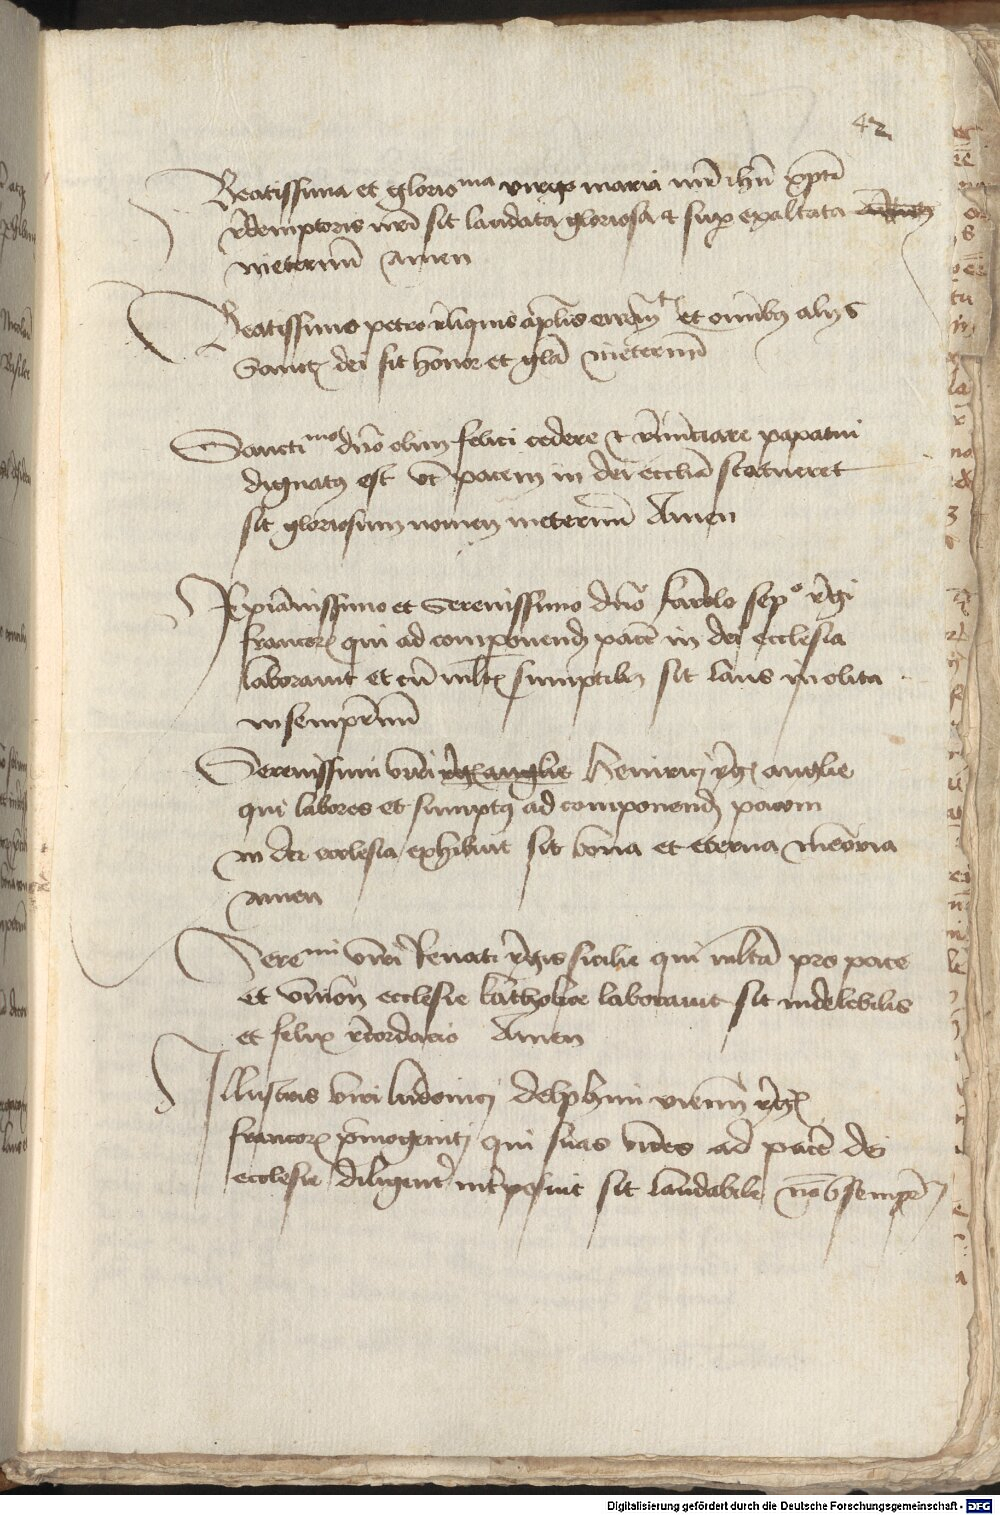 42
Beatissima et glorioma virgo maria mr̄ ihū xpī
rēdemptoris nrī sit laudata gloriosa et sup exaltata
ineternū amen
Beatissimo petro rēliquis aplīs et omībus alijs
Sanctis dei sit honor et glā ineternū
Sanctimo dño olim felici cedere et rēnūciare papatui
dignatus est ut pacem in dei ecclīa statueret
sit gloriosum nomen ineternū Amen
Xpianissimo et Serenissimo dño karolo sepo regi
francorum qui ad componendam pacē in dei ecclesia
laborauit et cū mltis sumptibus sit laus inclita
insempnū
Serenissimi viri regis anglie Heinrici regis anglie
qui labores et sumptus ad componendam pacem
in dei ecclesia exhibuit sit bona et eterna memoria
amen
Serenmi viri Renati regis sicilie qui mltā pro pace
et vnion ecclesie katholice laborauit sit indelebilis
et felix recordacio Amen
Illustris viri ludouici delphini vienn regis
francorum pmogeniti qui suas vices ad pacē dei
ecclesie diligent int̄posuit sit laudabile semper
Digitalisierung gefördert durch die Deutsche Forschungsgemeinschaft - DFG